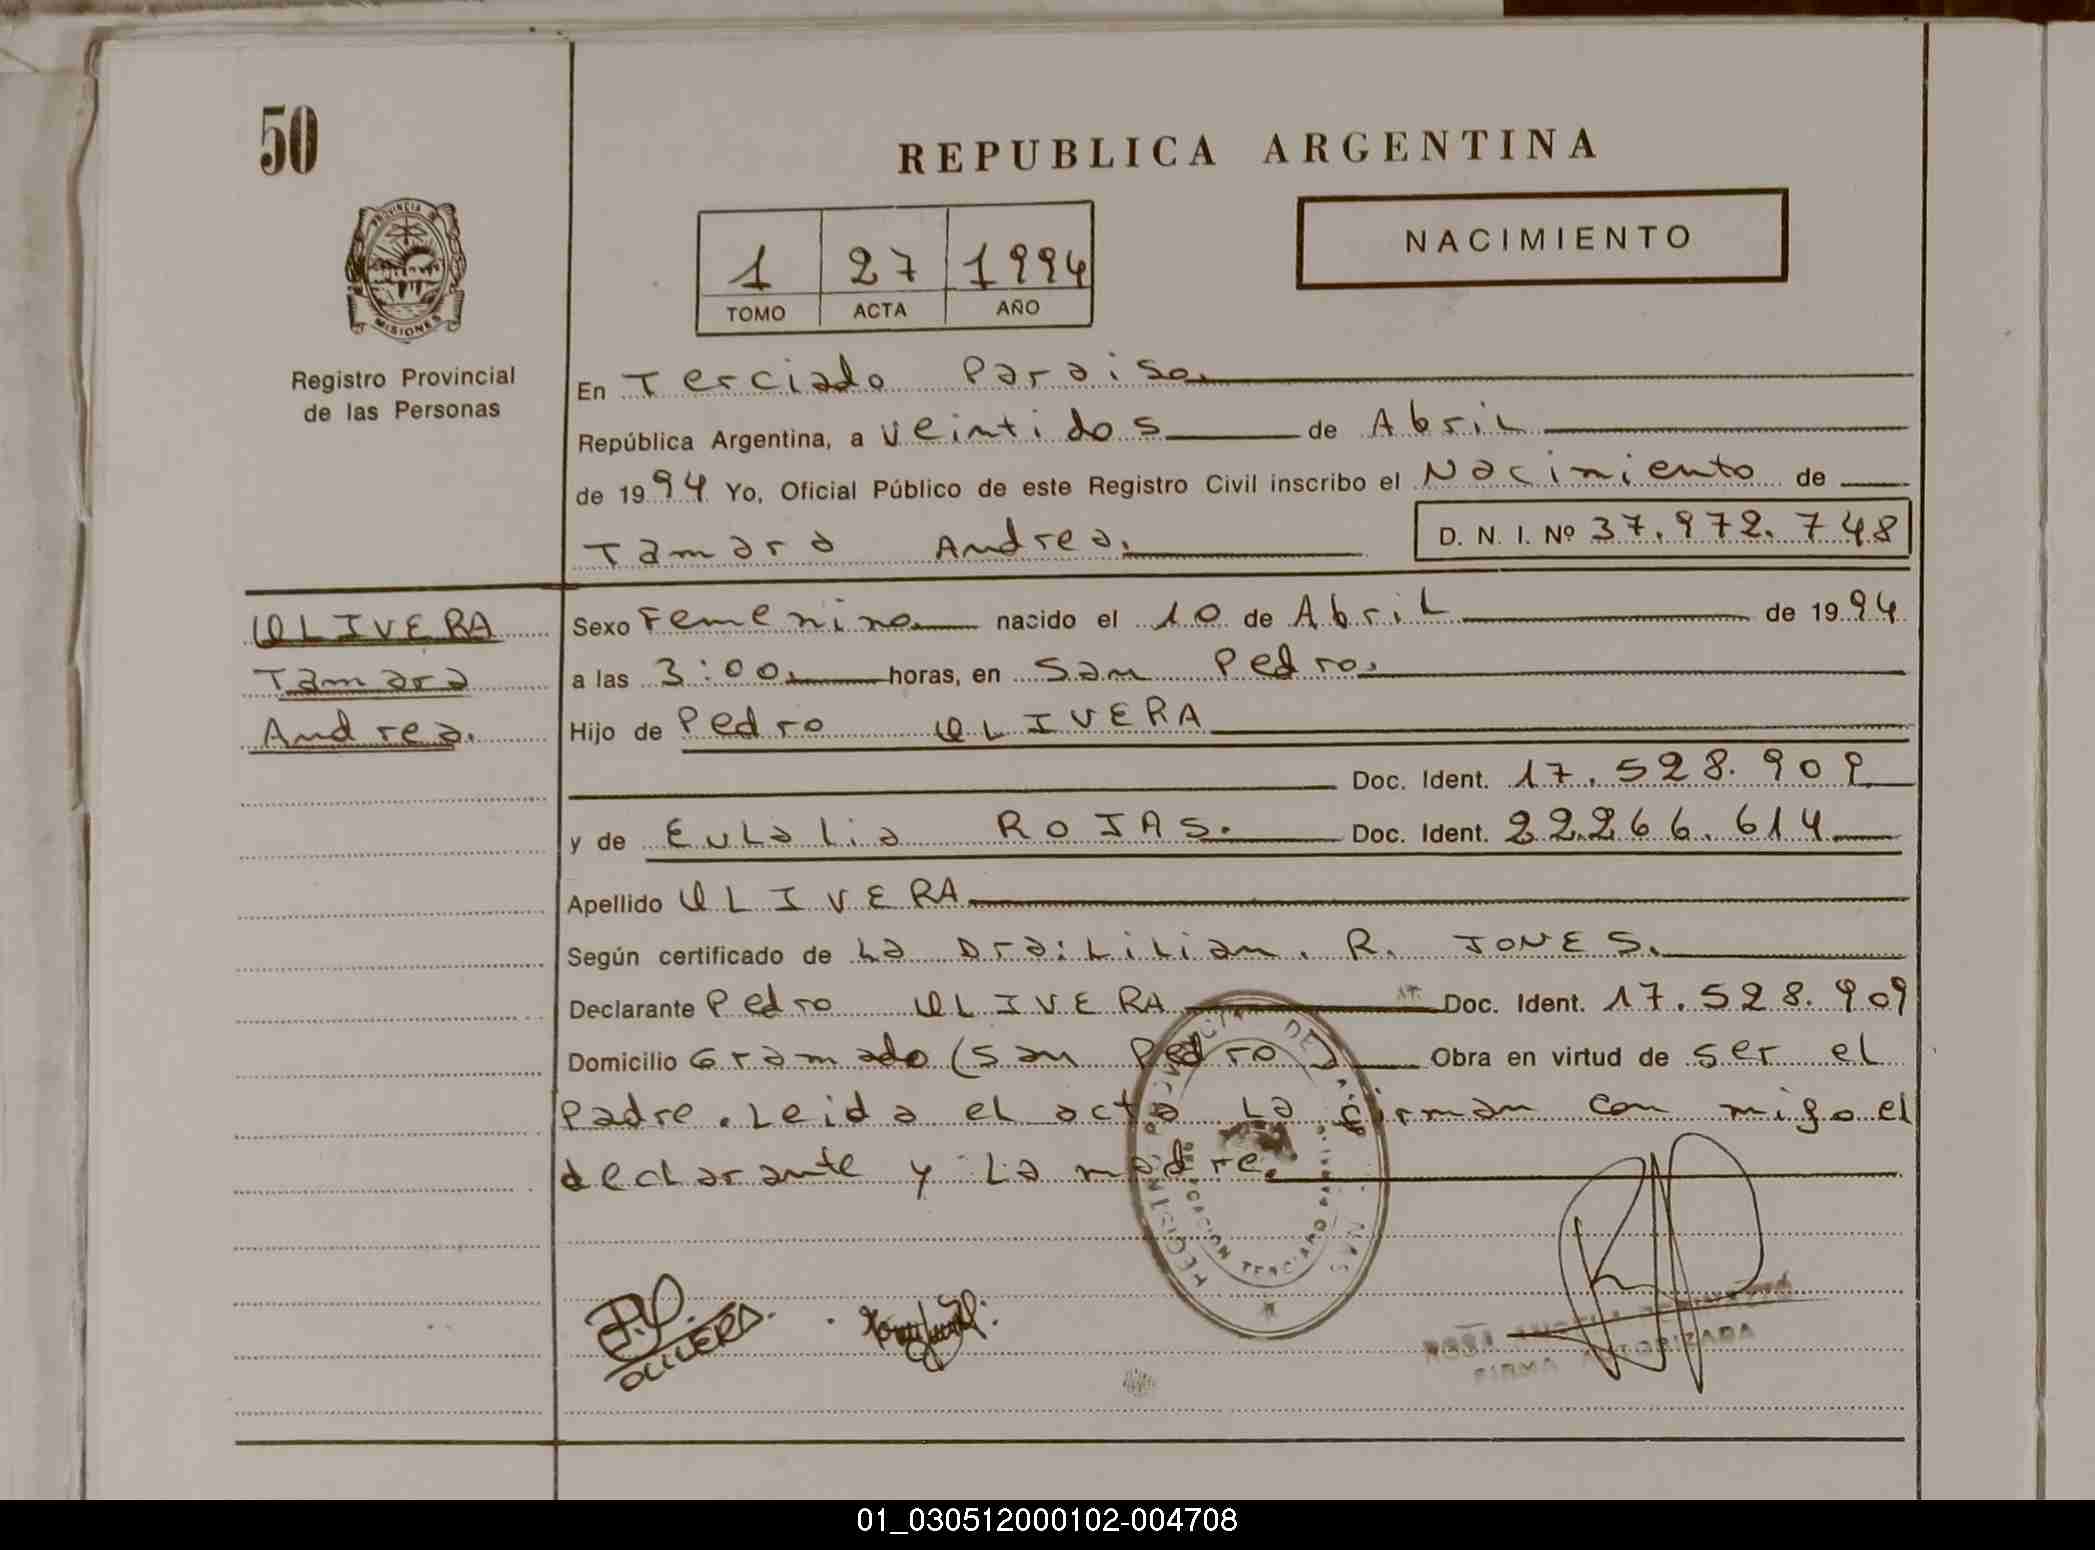 50
REPUBLICA ARGENTINA
NACIMIENTO
1 27 1994
TOMO ACTA AÑO
PROVINCIA DE
MISIONES
Registro Provincial
de las Personas
En Terciado Paraiso.
República Argentina, a veintidos de Abril
de 1994 Yo, Oficial Público de este Registro Civil inscribo el Nacimiento de
Tamara Andrea. D. N. I. Nº 37.972.748
OLIVERA
Tamara
Andrea.
Sexo Femenino nacido el 10 de Abril de 1994
a las 3:00 horas, en San Pedro.
Hijo de Pedro OLIVERA
Doc. Ident. 17.528.909
y de Eulalia ROJAS. Doc. Ident. 22.266.614
Apellido OLIVERA
Según certificado de La Dra: Lilian. R. JONES.
Declarante Pedro OLIVERA Doc. Ident. 17.528.909
Domicilio Gramado (San Pedro) Obra en virtud de ser el
Padre. Leida el acta la firman con migo el
declarante y la madre.
DELEGACION TERCIADO PARAISO
OLIVERA.
ROSA
FIRMA AUTORIZADA
01_030512000102-004708